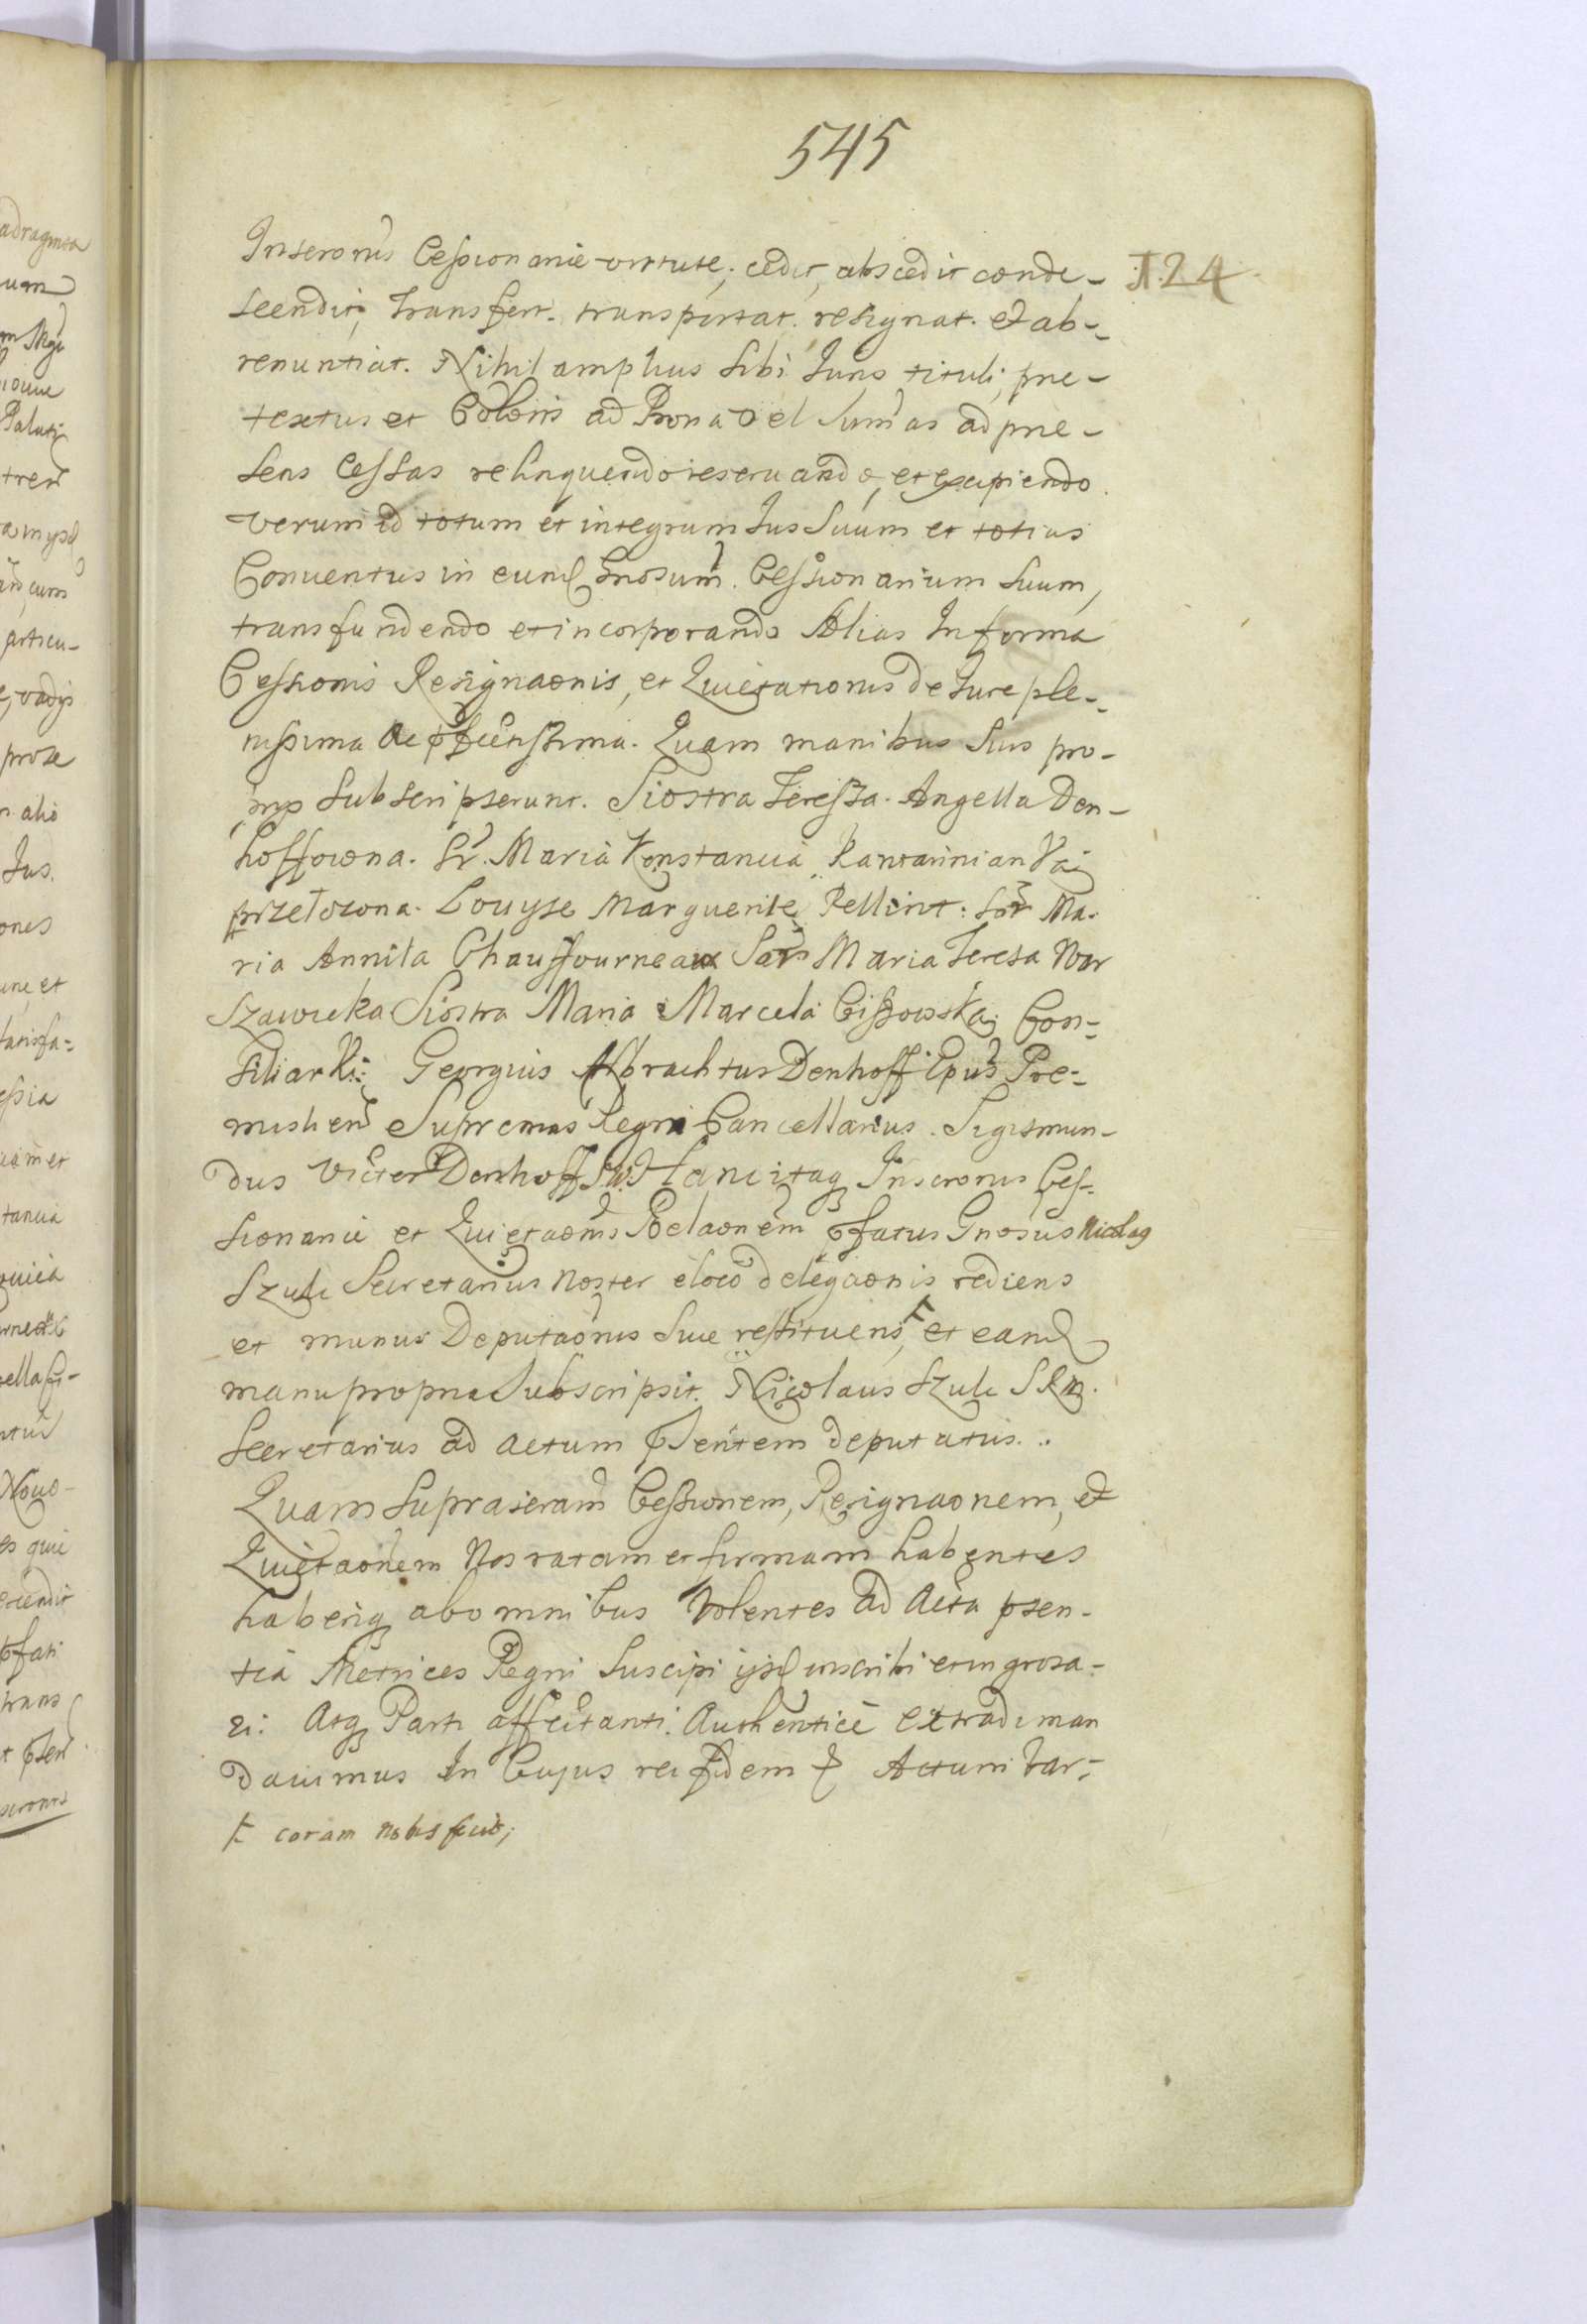 545
Inscronis Cessionariæ virtute, cedit, abscedit conde-
scendit, transfert. transportat. resignat. et ab-
renuntiat. Nihil amplius sibi Juris tituli, præ-
textus et Coloris ad Bona vel Summas ad præ-
sens Cessas relinquendo reservando, et excipiendo.
verum id totum et integrum Jus suum et totius
Conventus in eund Gnosum. Cessionarium suum,
transfundendo et incorporando Alias In forma
Cessionis Resignaonis, et Quietationis de Jure ple-
nissima ac pfectissima. Quam manibus suis pro-
prijs subscripserunt. Siostra Teressa. Angella Den-
hoffowna. Sr. Maria Konstancia
przełozona. Louyse Marguerite Pellint: Sor Ma-
ria Annita Chauffourneaux Sor Maria Teresa War
szawicka Siostra Maria Marcela Cissowska, Con-
siliarki: Georgius Albrachtus Denhoff Epus Pre-
mislien Supremus Regni Cancellarius. Sigismun-
dus Victer Denhoff Hancitaq Inscronis Ces-
sionariæ et Quietaonis Relaonem pfatus Gnosus Nicolaq
Szulc Secretarius noster eloco delegaonis rediens
et munus Deputaonis suæ restituens, F et eand
manu propria Subscripsit. Nicolaus Szulc SRM.
Secretarius ad actum psentem deputatus.
Quam supraseram Cessionem, Resignaonem, et
Quietaonem Nos ratam et firmam habentes
haberiq ab omnibus Volentes ad Acta psen-
tia Metrices Regni Suscipi ijsd inscribi et ingrosa-
ri: Atq Parti affectanti. Authenticè extradi man
davimus In Cujus rei fidem & Actum Var-
F coram nobis fecit;
124